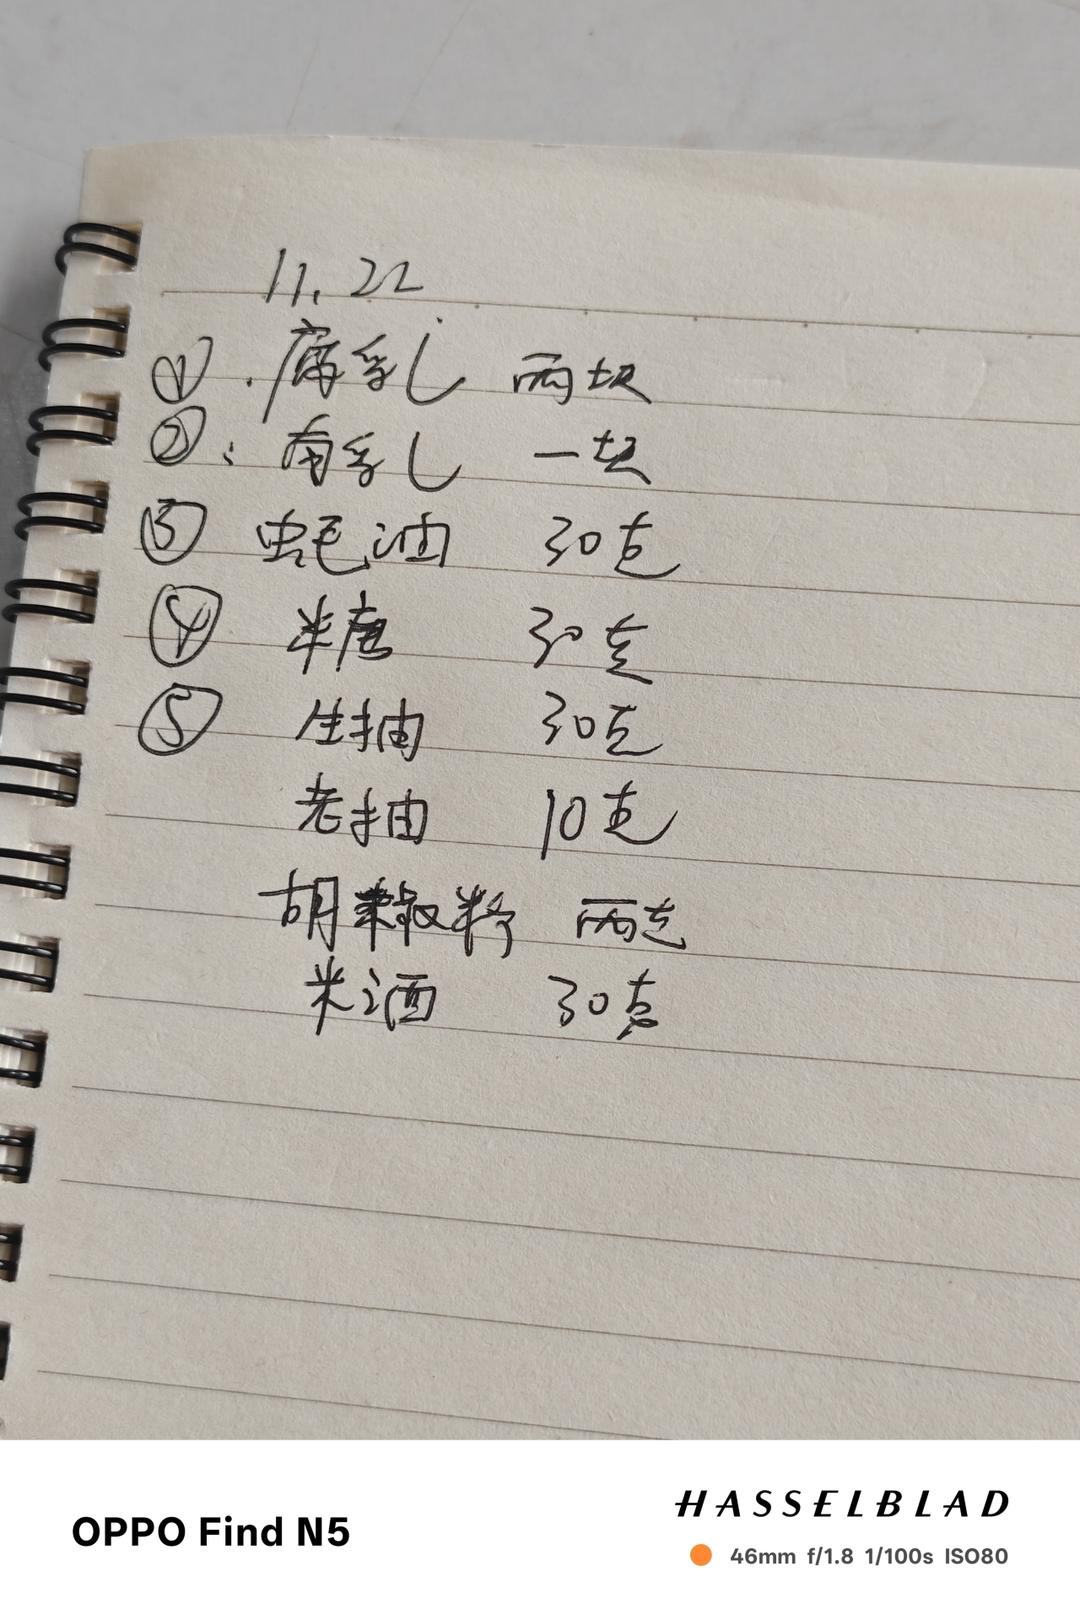 11.22
① 腐乳 两块
② 南乳 一块
③ 蚝油 30克
④ 糖 30克
⑤ 生抽 30克
老抽 10克
胡椒粉 两克
米酒 30克
OPPO Find N5
HASSELBLAD
46mm f/1.8 1/100s ISO80